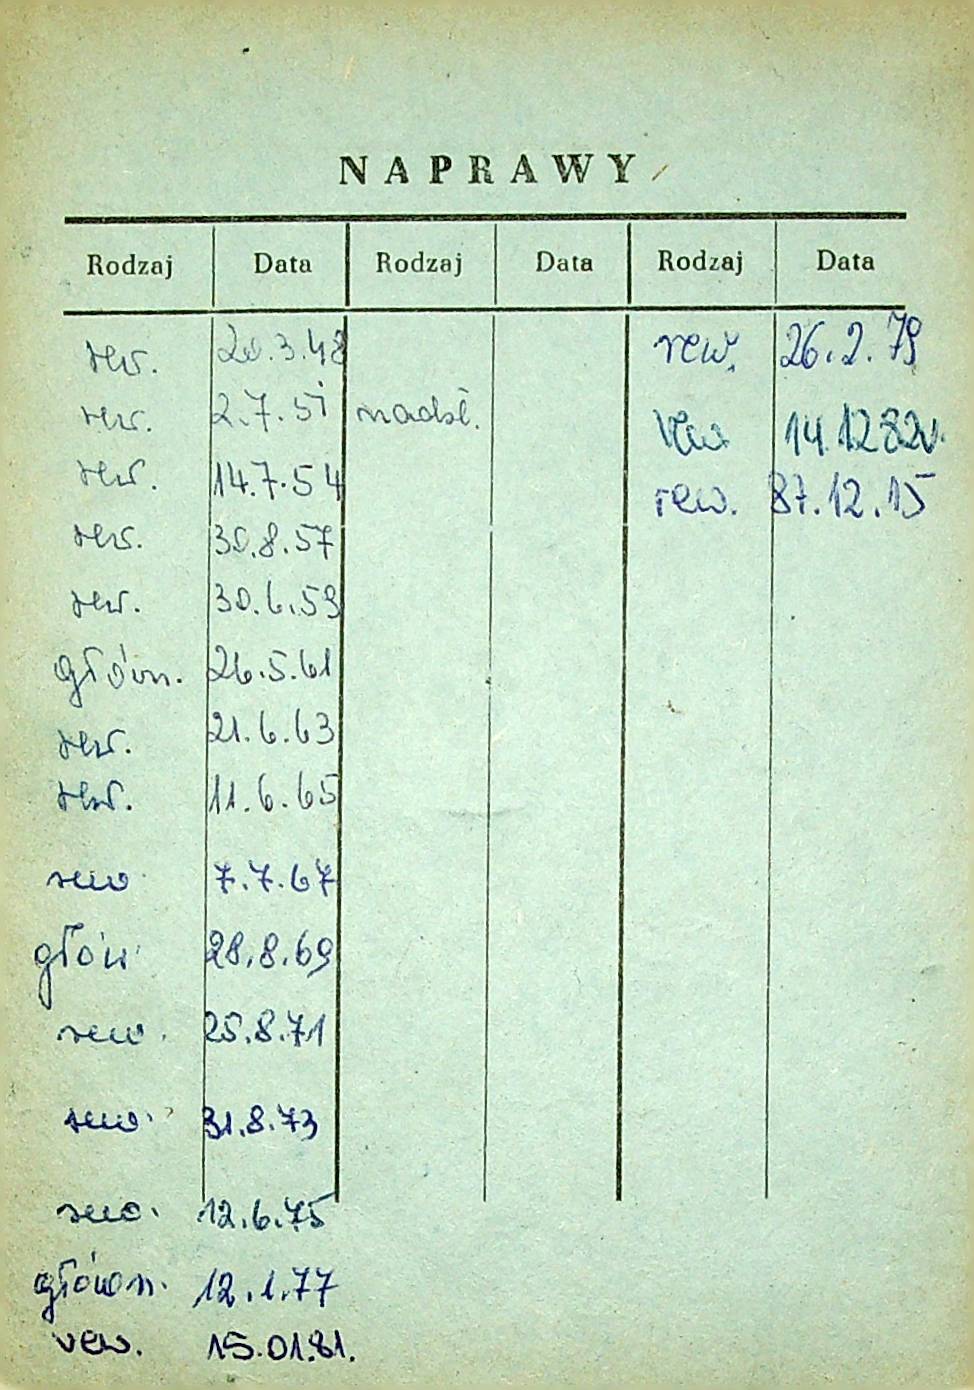 NAPRAWY
Rodzaj Data Rodzaj Data Rodzaj Data
rew. 20.3.48 rew. 26.2.79
rew. 2.7.51 nadzt. rew 14.12 82r.
rew. 14.7.54 rew. 87.12.15
rew. 30.8.57
rew. 30.6.59
główn. 26.5.61
rew. 21.6.63
rew. 11.6.65
rew 7.7.67
główn 28.8.69
rew. 25.8.71
rew. 31.8.73
rew. 12.6.75
główn. 12.1.77
rew. 15.01.81.